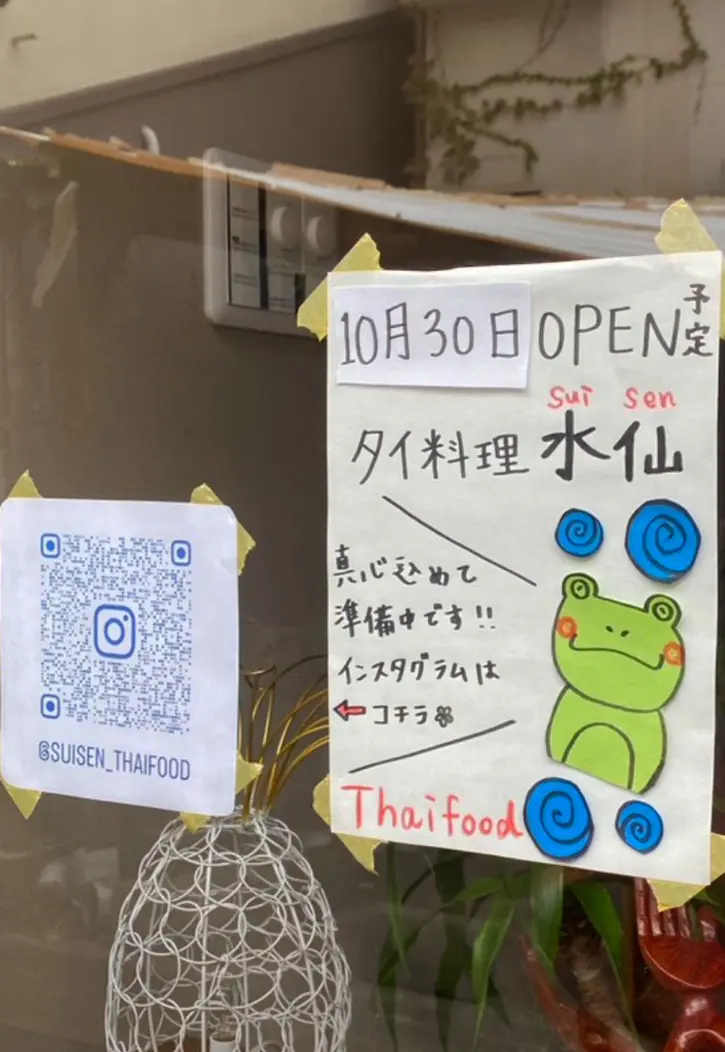 10月30日OPEN予定
Sui sen
タイ料理 水仙
真心込めて
準備中です!!
インスタグラムは
←コチラ
Thaifood
@SUISEN_THAIFOOD